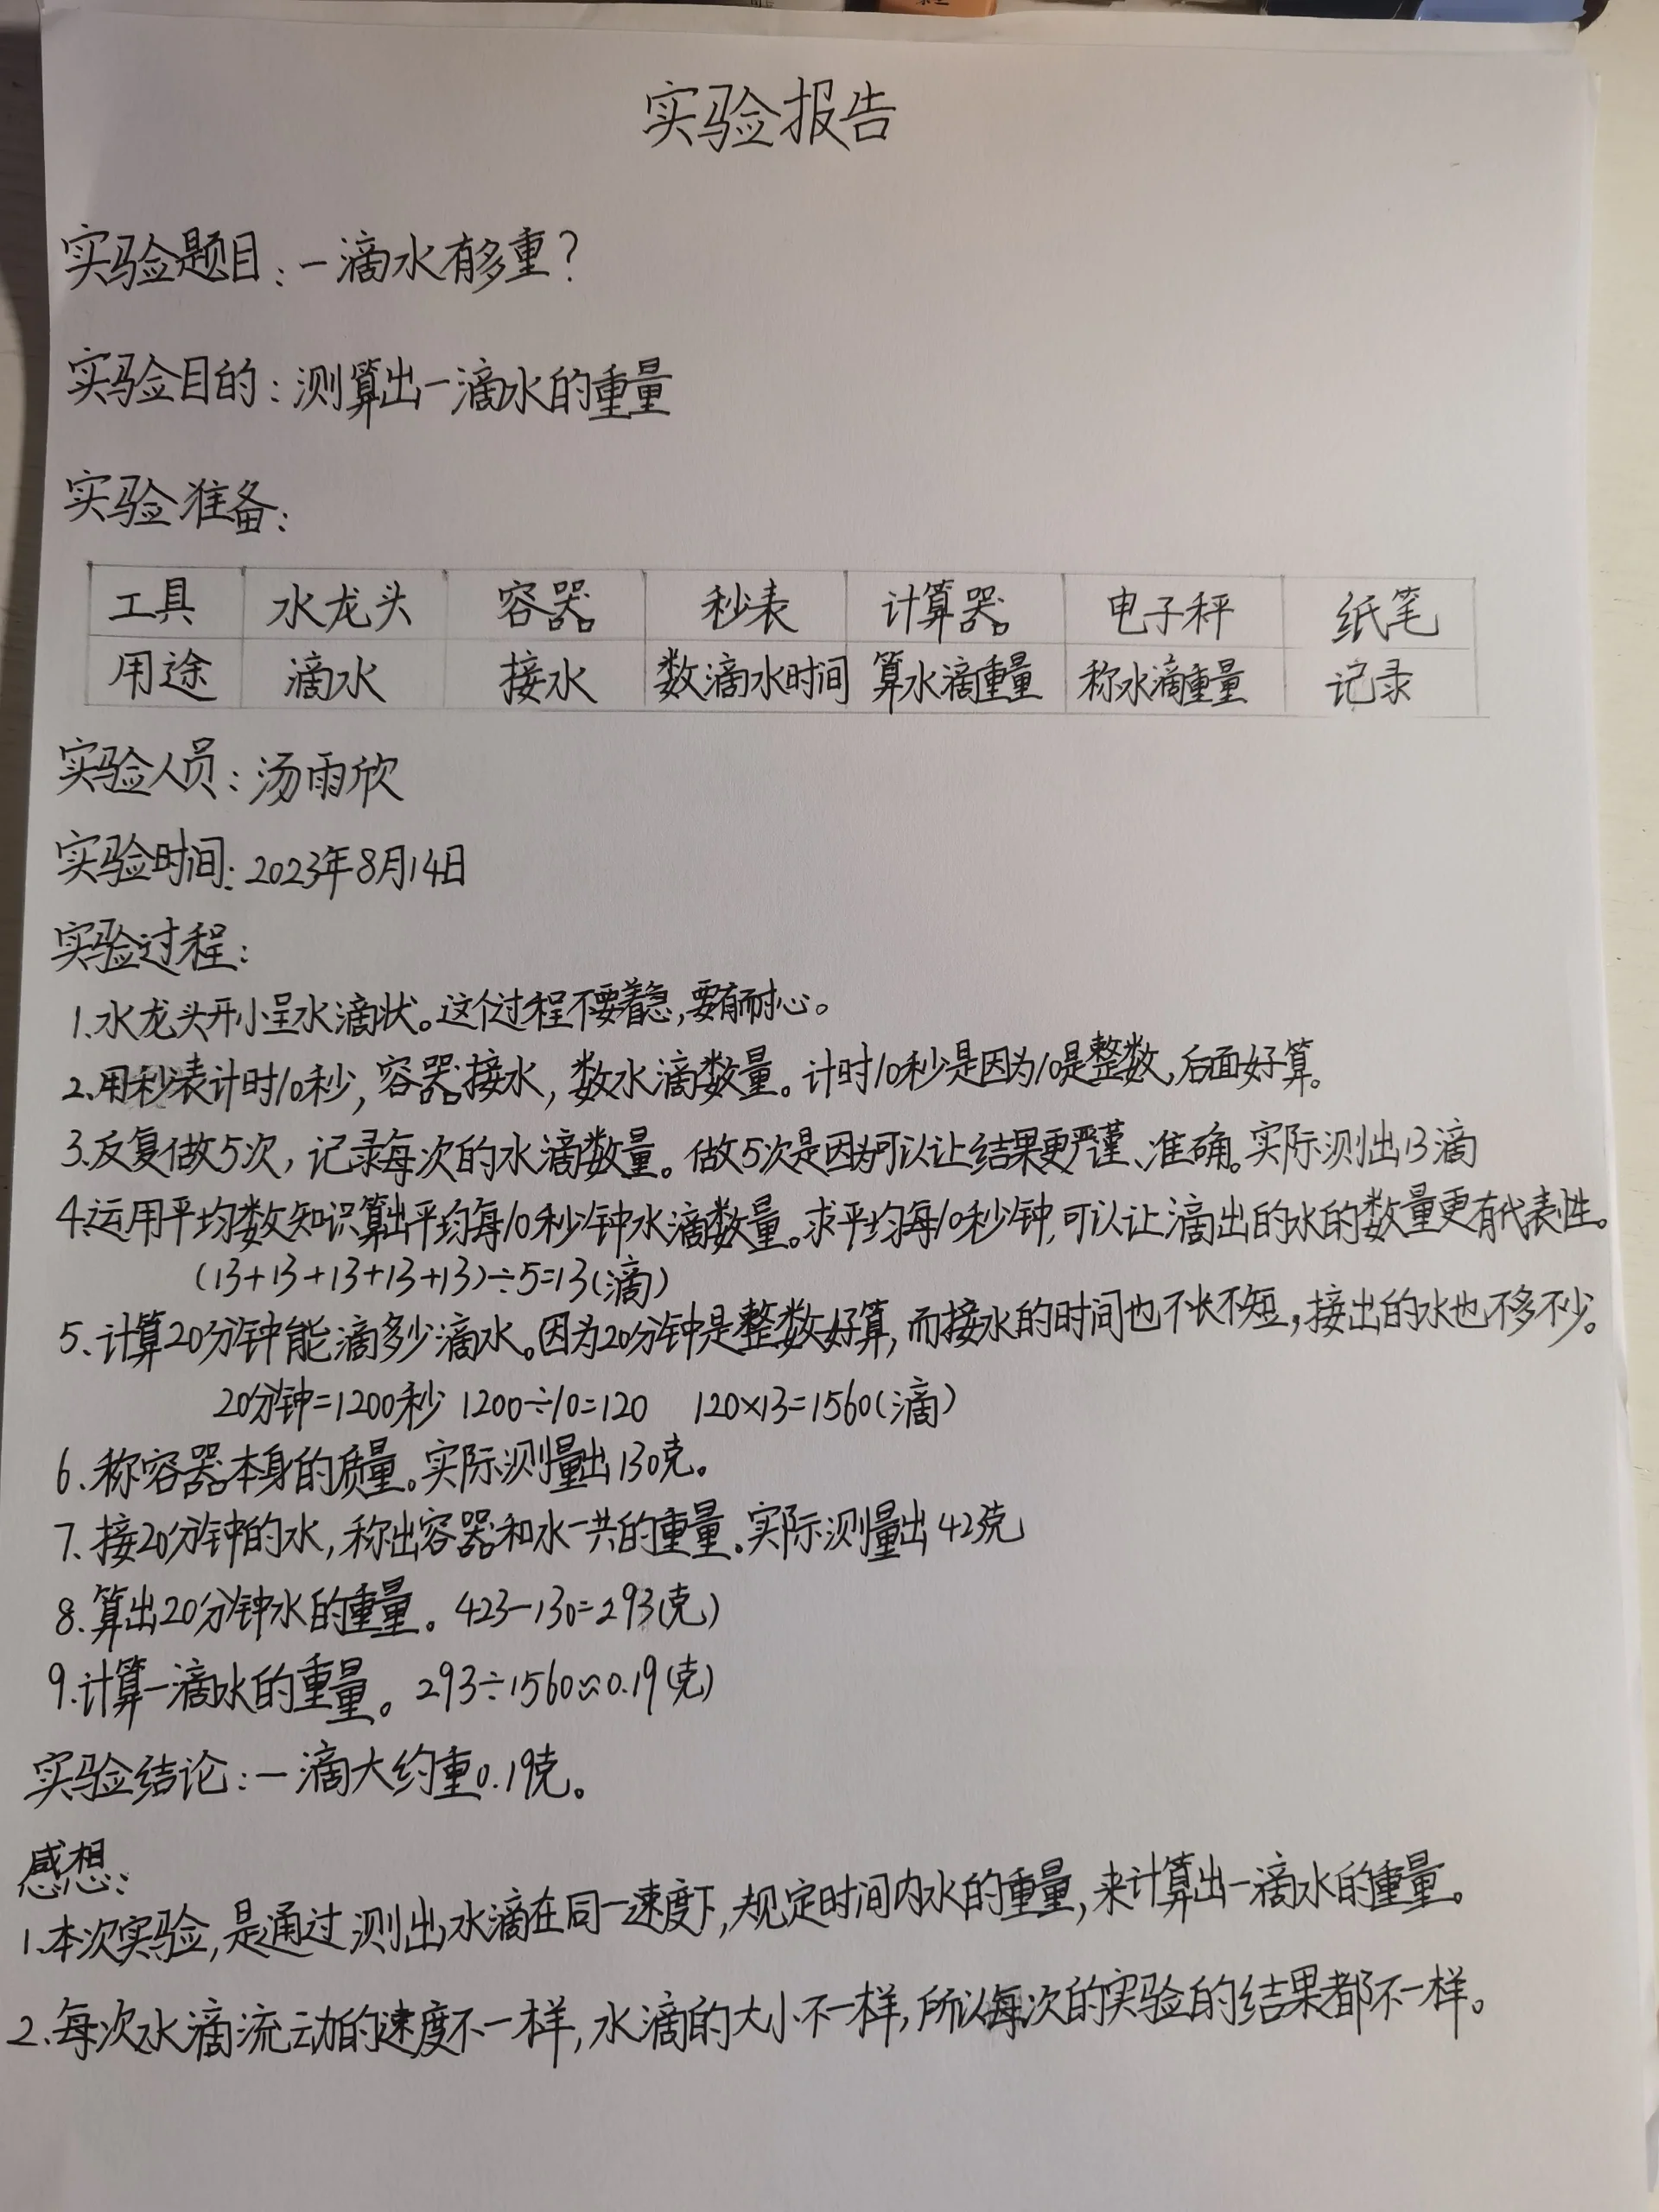 实验报告
实验题目：一滴水有多重？
实验目的：测算出一滴水的重量
实验准备：
工具 水龙头 容器 秒表 计算器 电子秤 纸笔
用途 滴水 接水 数滴水时间 算水滴重量 称水滴重量 记录
实验人员：汤雨欣
实验时间：2023年8月14日
实验过程：
1.水龙头开小呈水滴状。这个过程不要着急，要有耐心。
2.用秒表计时10秒，容器接水，数水滴数量。计时10秒是因为10是整数，后面好算。
3.反复做5次，记录每次的水滴数量。做5次是因为可以让结果更严谨、准确。实际测出13滴
4.运用平均数知识算出平均每10秒分钟水滴数量。求平均每10秒分钟，可以让滴出的水的数量更有代表性。
(13+13+13+13+13)÷5=13(滴)
5.计算20分钟能滴多少滴水。因为20分钟是整数好算，而接水的时间也不长不短，接出的水也不多不少。
20分钟=1200秒 1200÷10=120 120×13=1560(滴)
6.称容器本身的质量。实际测量出130克。
7.接20分钟的水，称出容器和水一共的重量。实际测量出423克
8.算出20分钟水的重量。423-130=293(克)
9.计算一滴水的重量。293÷1560≈0.19(克)
实验结论：一滴大约重0.19克。
感想：
1.本次实验，是通过测出水滴在同一速度下，规定时间内水的重量，来计算出一滴水的重量。
2.每次水滴流动的速度不一样，水滴的大小不一样，所以每次的实验的结果都不一样。